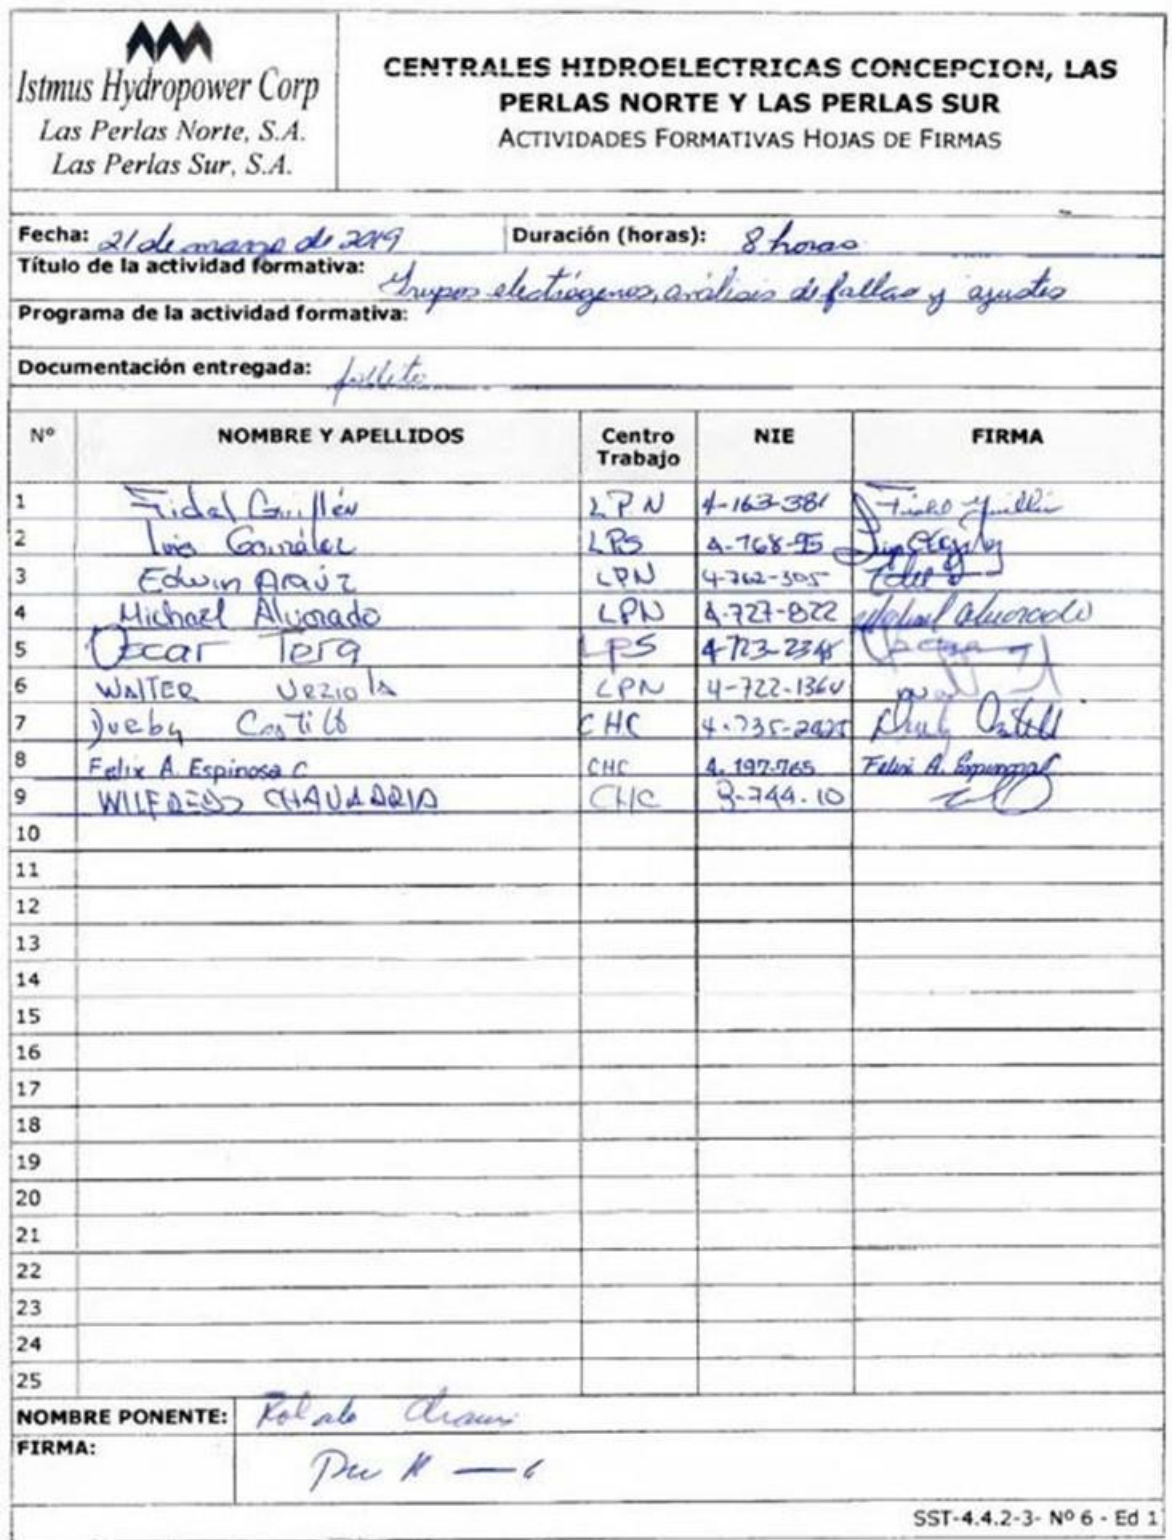 Istmus Hydropower Corp
Las Perlas Norte, S.A.
Las Perlas Sur, S.A.
CENTRALES HIDROELECTRICAS CONCEPCION, LAS
PERLAS NORTE Y LAS PERLAS SUR
ACTIVIDADES FORMATIVAS HOJAS DE FIRMAS
Fecha: 21 de marzo de 2019 Duración (horas): 8 horas
Título de la actividad formativa: Grupos electrógenos, análisis de fallas y ajustes
Programa de la actividad formativa:
Documentación entregada: folleto
Nº NOMBRE Y APELLIDOS Centro Trabajo NIE FIRMA
1 Fidel Guillén LPN 4-163-381 Fidel Guillén
2 Luis González LPS 4-768-95
3 Edwin Araúz LPN 4-762-305
4 Michael Alvarado LPN 4-727-822 Michael Alvarado
5 Oscar LPS
6 WALTER LPN 4-722-1364
7 Dueby Castillo CHC
8 Felix A. Espinosa C CHC 4.197.765 Felix A. Espinosa
9 WILFREDO CHAVARRIA CHC
10
11
12
13
14
15
16
17
18
19
20
21
22
23
24
25
NOMBRE PONENTE:
FIRMA:
SST-4.4.2-3- Nº 6 - Ed 1